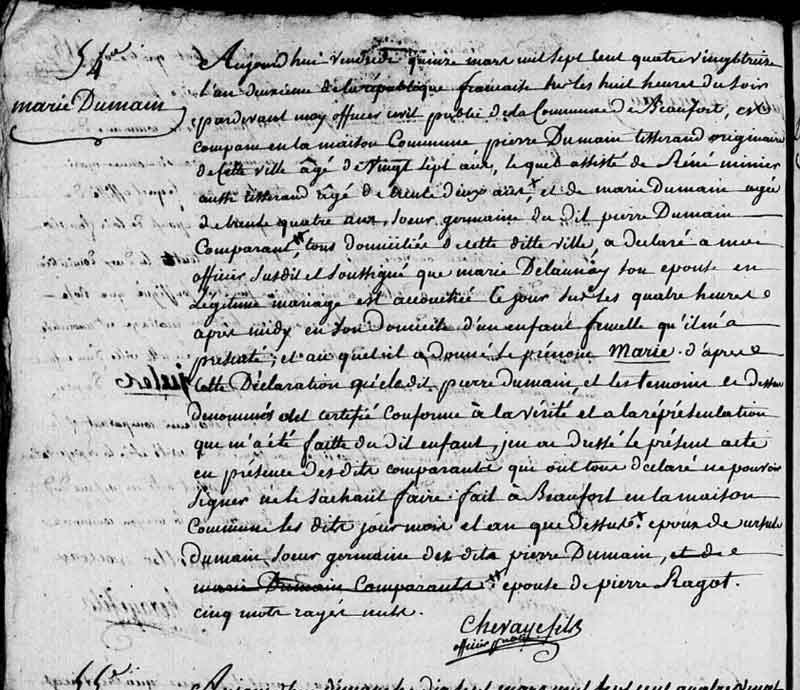 54e
marie Dumain
Aujourdhui vendredi quinze mars mil sept cent quatre vingt treize
l'an deuxieme de la république francaise sur les huit heures du soir
pardevant moy officier civil public de la Commune de Beaufort, est
comparu en la maison Commune, pierre Dumain tisserand originaire
de Cette ville âgé de Vingt sept ans, lequel assisté de René minier
aussi tisserand âgé de trente deux ans x, et de marie Dumain agée
de trente quatre ans, soeur germaine du dit pierre Dumain
Comparant xx, tous domiciliés de cette ditte ville, a déclaré a moi
officier susdit et soussigné que marie Delaunay son epouse en
Légitime mariage est accouchée ce jour sur les quatre heures
après midy en son domicile d'un enfant femelle qu'il m'a
présenté; et au quel il a donné le prénom Marie. d'après
Cette Déclaration que le dit pierre dumain, et les temoins ci dessus
denommés ont certifié Conforme à la vérité et a la répresentation
qui m'a été faitte du dit enfant, j'en ai dressé le présent acte
en présence des dits comparants qui ont tous déclaré ne pouvoir
signer ne le sachant faire. fait à Beaufort en la maison
Commune les dits jour mois et an que dessus. x epoux de ursule
dumain soeur germaine des dits pierre Dumain, et de
marie Dumain Comparants. xx epouse de pierre Ragot.
cinq mots rayés nuls.
Chevaye fils
officier public
55e